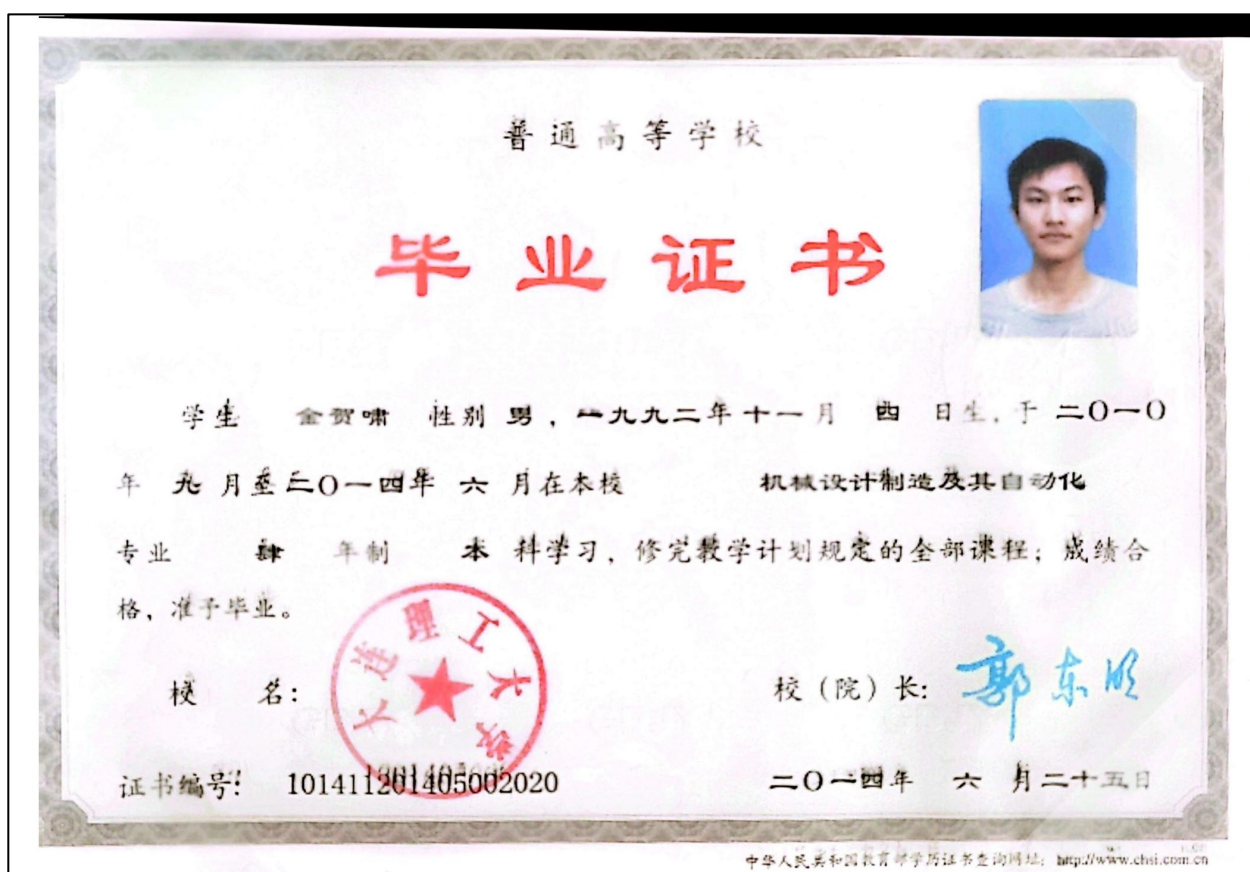 普通高等学校
毕业证书
学生 金贺啸 性别 男，一九九二年十一月 四 日生，于 二〇一〇
年 九 月至二〇一四年 六 月在本校 机械设计制造及其自动化
专业 肆 年制 本 科学习，修完教学计划规定的全部课程；成绩合
格，准予毕业。
大连理工大学
校 名： 校（院）长： 郭东明
证书编号： 101411201405002020 二〇一四年 六 月二十五日
中华人民共和国教育部学历证书查询网址：http://www.chsi.com.cn